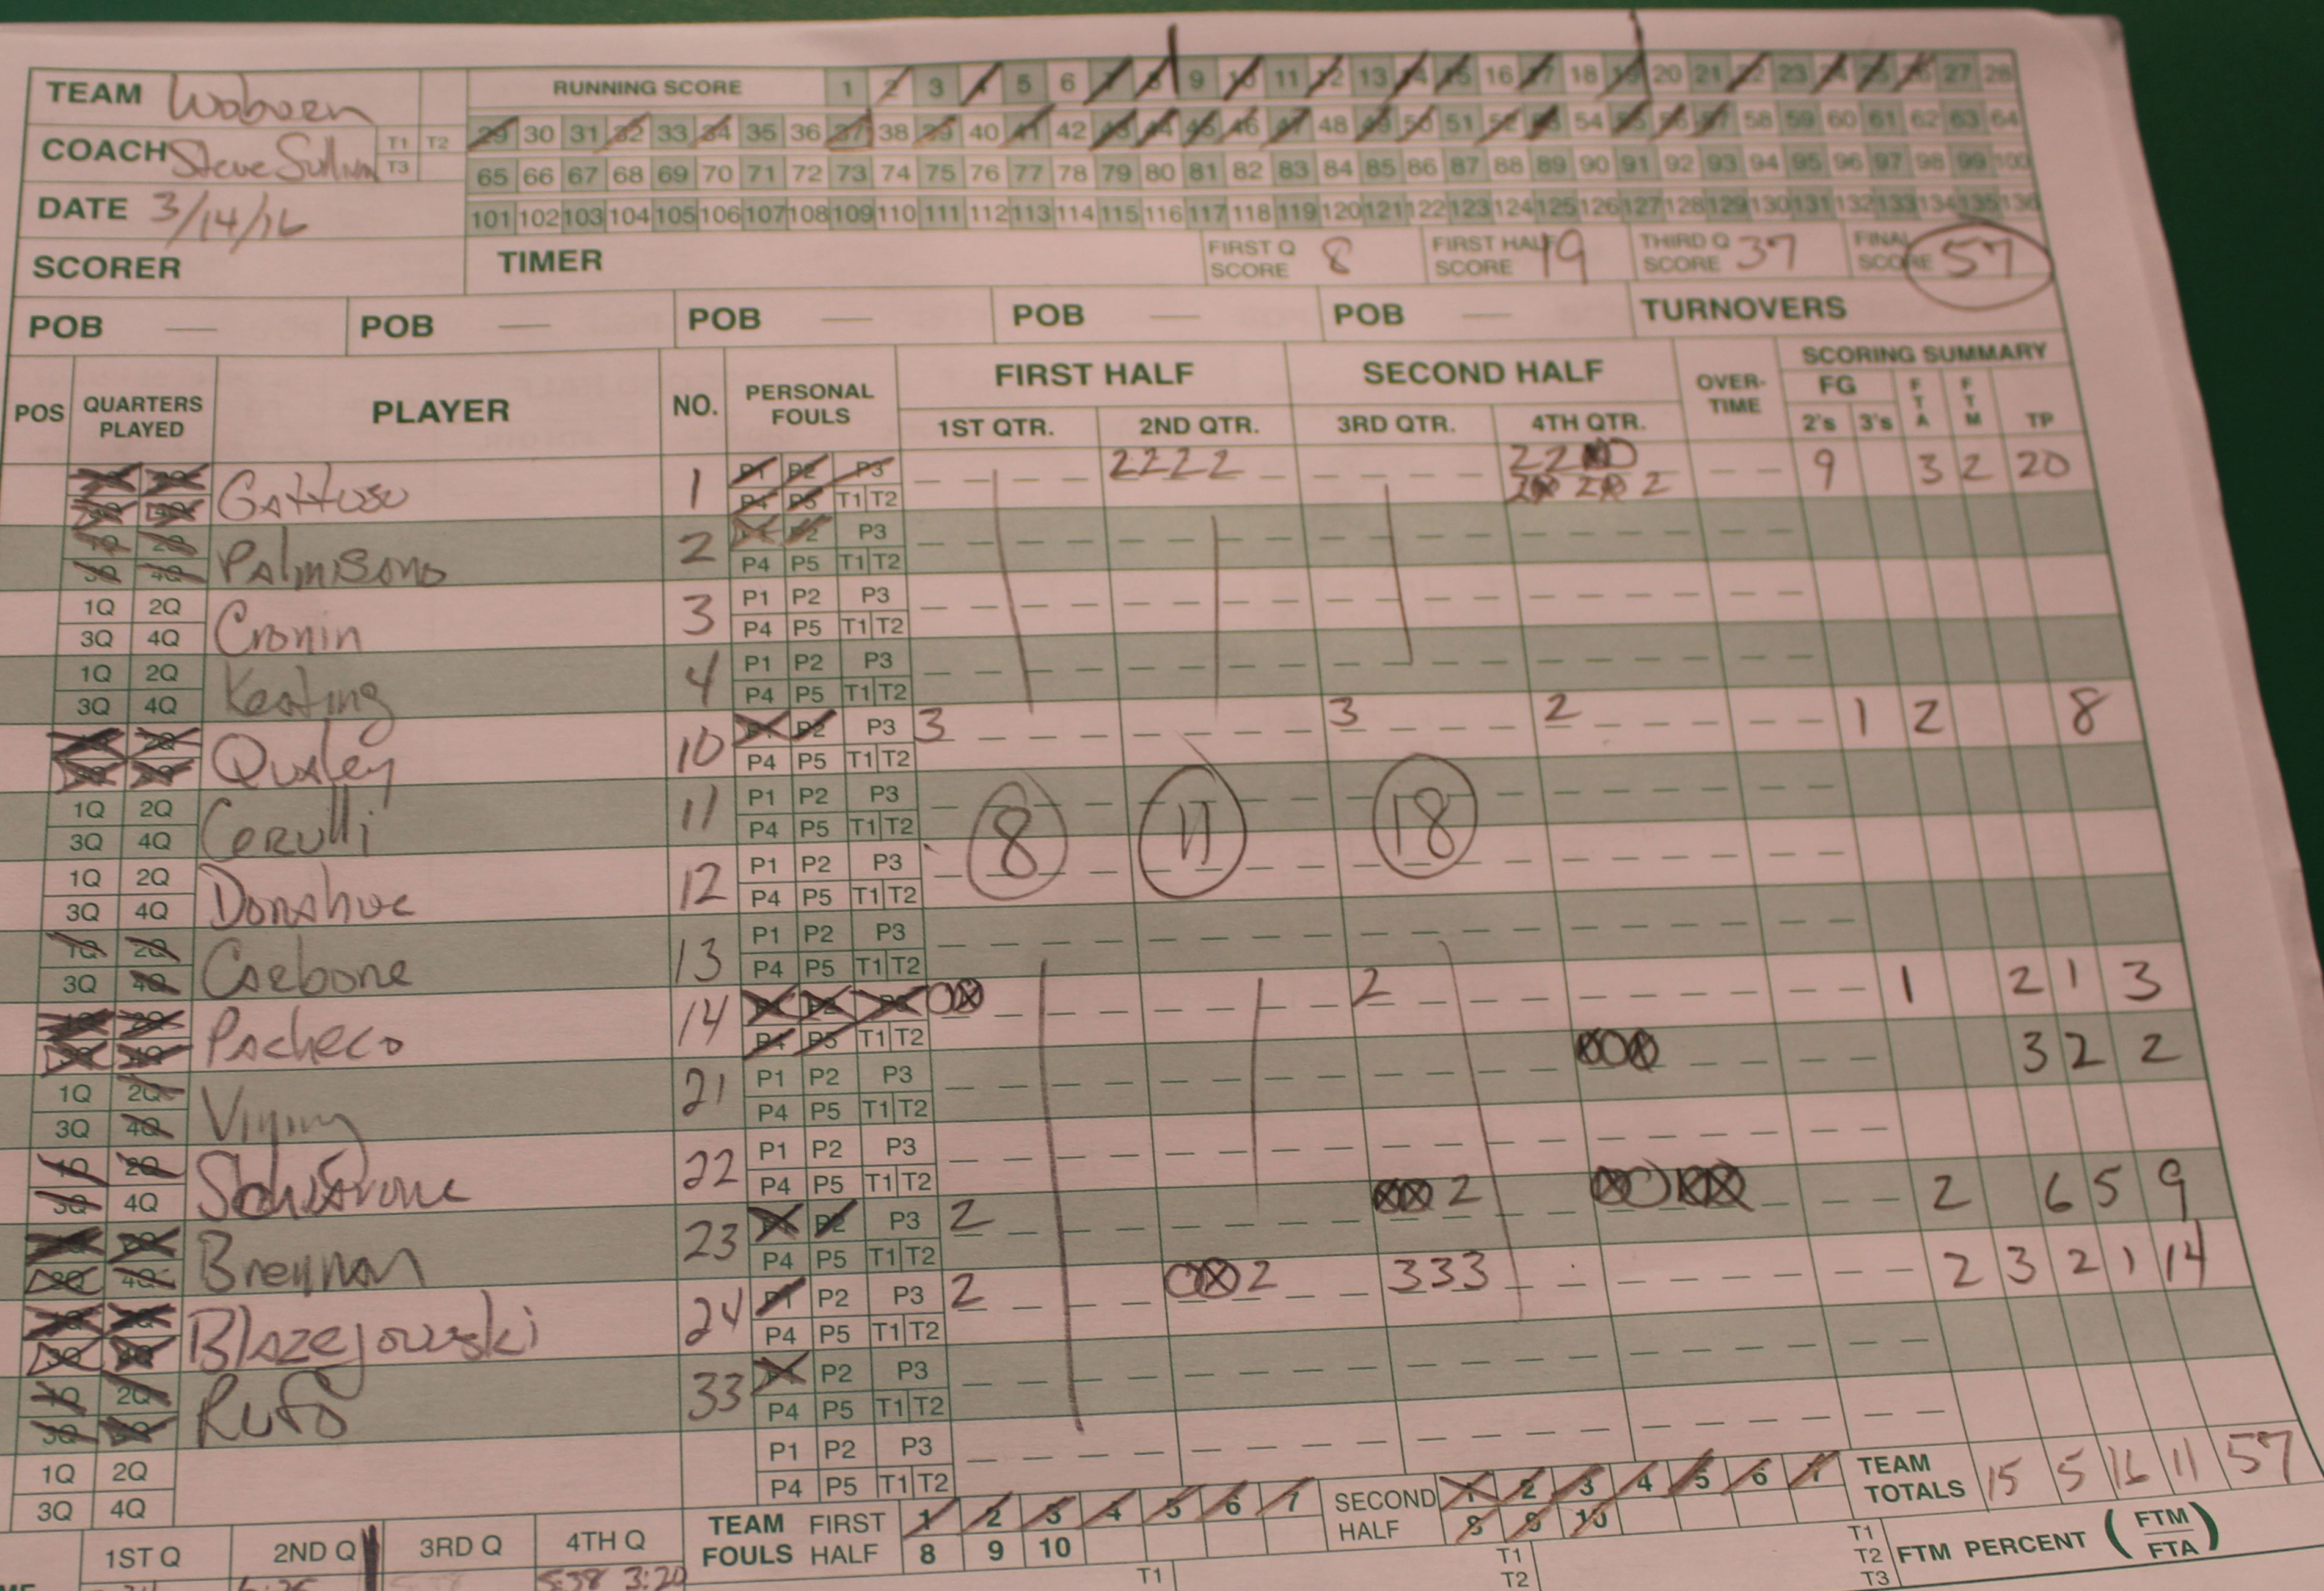 TEAM Woburn RUNNING SCORE 1 2 3 4 5 6 7 8 9 10 11 12 13 14 15 16 17 18 19 20 21 22 23 24 25 26 27 28
29 30 31 32 33 34 35 36 37 38 39 40 41 42 43 44 45 46 47 48 49 50 51 52 53 54 55 56 57 58 59 60 61 62 63 64
COACH Steve Sullivan T1 T2 T3
65 66 67 68 69 70 71 72 73 74 75 76 77 78 79 80 81 82 83 84 85 86 87 88 89 90 91 92 93 94 95 96 97 98 99 100
DATE 3/14/16 101 102 103 104 105 106 107 108 109 110 111 112 113 114 115 116 117 118 119 120 121 122 123 124 125 126 127 128 129 130 131 132 133 134 135 136
SCORER TIMER FIRST Q SCORE 8 FIRST HALF SCORE 19 THIRD Q SCORE 37 FINAL SCORE 57
POB POB POB POB POB TURNOVERS
POS QUARTERS PLAYED PLAYER NO. PERSONAL FOULS FIRST HALF SECOND HALF OVER-TIME SCORING SUMMARY
1ST QTR. 2ND QTR. 3RD QTR. 4TH QTR. FG 2's 3's FTA FTM TP
Gattuso 1 P1 P2 P3 2222 22 9 3 2 20
P4 P5 T1 T2 2 2 2
Palmisano 2 P2 P3
3Q 4Q P4 P5 T1 T2
1Q 2Q Cronin 3 P1 P2 P3
3Q 4Q P4 P5 T1 T2
1Q 2Q Keating 4 P1 P2 P3
3Q 4Q P4 P5 T1 T2
Quigley 10 P2 P3 3 3 2 1 2 8
P4 P5 T1 T2
1Q 2Q Cerulli 11 P1 P2 P3
3Q 4Q P4 P5 T1 T2
8 11 18
1Q 2Q Donahue 12 P1 P2 P3
3Q 4Q P4 P5 T1 T2
1Q 2Q Carbone 13 P1 P2 P3
3Q 4Q P4 P5 T1 T2
Pacheco 14 2 1 2 1 3
P4 P5 T1 T2 3 2 2
1Q 2Q Vining 21 P1 P2 P3
3Q 4Q P4 P5 T1 T2
1Q 2Q 22 P1 P2 P3
3Q 4Q P4 P5 T1 T2 2 2 6 5 9
Brennan 23 P2 P3 2
4Q P4 P5 T1 T2
Blazejowski 24 P1 P2 P3 2 2 333 2 3 2 1 14
P4 P5 T1 T2
1Q 2Q Rufo 33 P2 P3
3Q P4 P5 T1 T2
1Q 2Q P1 P2 P3
3Q 4Q P4 P5 T1 T2
TEAM FOULS FIRST HALF 1 2 3 4 5 6 7 SECOND HALF 1 2 3 4 5 6 7 TEAM TOTALS 15 5 16 11 57
8 9 10 8 9 10
1ST Q 2ND Q 3RD Q 4TH Q T1 T1 T2 T1 T2 T3 FTM PERCENT (FTM FTA)
5:38 3:20